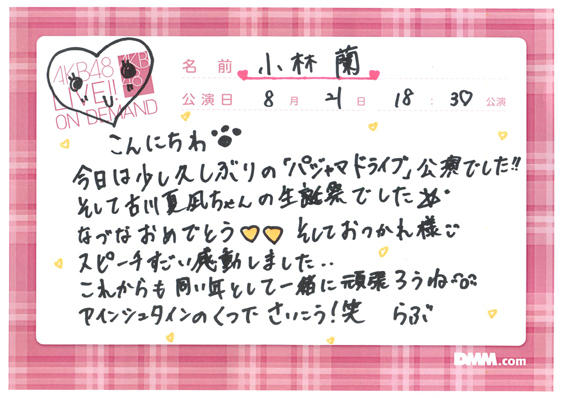 AKB48
LIVE!!
ON DEMAND
AKB
48
名前 小林 蘭
公演日 8月 21日 18:30 公演
こんにちわ
今日は少し久しぶりの「パジャマドライブ」公演でした!!
そして古川夏凪ちゃんの生誕祭でした
なづなおめでとう そしておつかれ様
スピーチすごい感動しました..
これからも同い年として一緒に頑張ろうね
アインシュタインのくつでさいこう!笑 らぶ
DMM.com